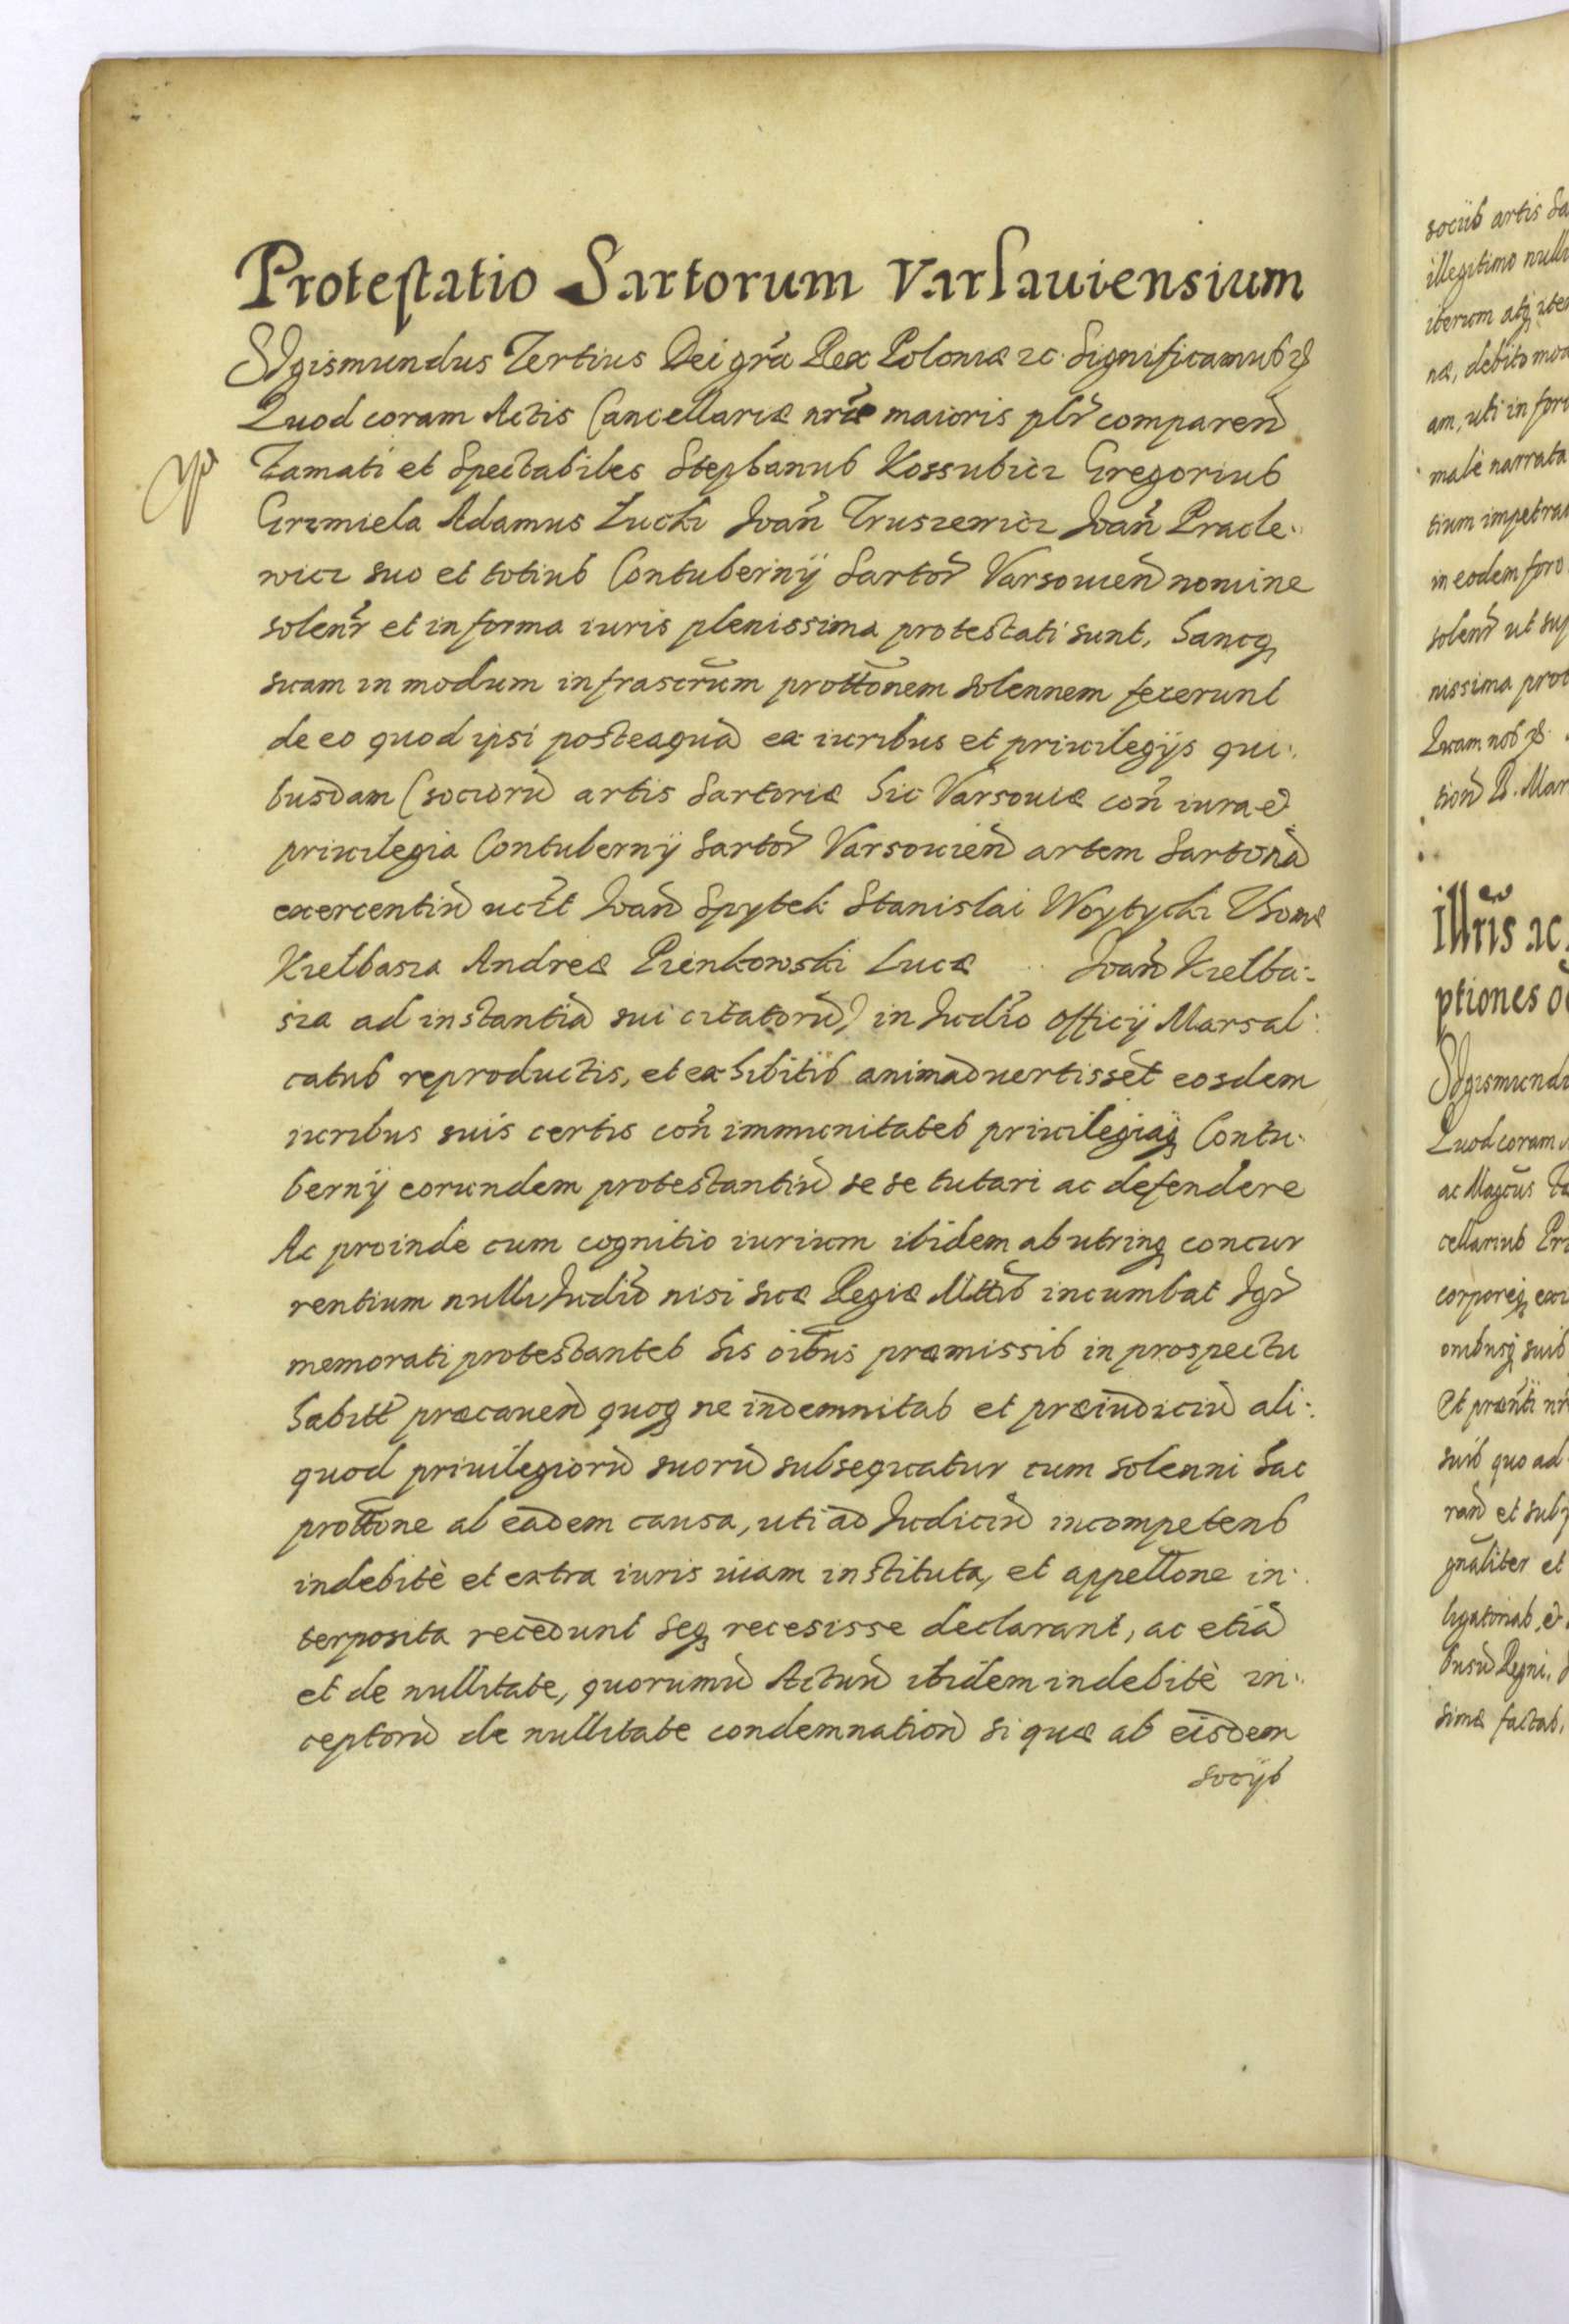 Protestatio Sartorum Varsauiensium
Sigismundus Tertius Dei grã Rex Poloniæ ec. Significamus
Quod coram Actis Cancellariæ nræ maioris plr comparen̄
Famati et Spectabiles Stephanus Kossubicz Gregorius
Grzmiela Adamus Lucki Joan̄ Truszewicz Joan̄ Pracle:
wicz suo et totius Contubernij Sartor̄ Varsouien̄ nomine
solenr̄ et in forma iuris plenissima protestati sunt, hancq̧
suam in modum infrascrūm prottōnem solennem fecerunt
de eo quod ipsi posteaquā ex iuribus et priuilegijs qui:
busdam (sociorū artis Sartoriæ hic Varsouiæ con̄ iura et
priuilegia Contubernij Sartor̄ Varsouien̄ artem Sartoriā
exercentiū uclt Joan̄ Spytek Stanislai Woytycki Thomæ
Kielbasza Andreæ Pienkowski Lucæ .. Joan̄ Kielba:
sza ad instantiā sui citatorū) in Judīo officij Marsal:
catus reproductis, et exhibitis animaduertissēt eosdem
iuribus suis certis con̄ immunitates priuilegiaq̧ Contu:
bernij eorundem protestantiū se se tutari ac defendere
Ac proindè cum cognitio iurium ibidem ab utrinq̧ concur
rentium nulli Judīo nisi suæ Regiæ Mttis incumbat Igr̄
memorati protestantes his oībus præmissis in prospectu
habitt præcauen̄ quoq̧ ne indemnitas et præiudiciū ali:
quod priuilegiorū suorū subsequatur cum solenni hac
prottōne ab eādem causa, uti ad Judiciū incompetens
indebitè et extra iuris uiam instituta, et appellōne in:
terposita recedunt seq̧ recesisse declarant, ac etiā
et de nullitate, quorumū Actuū ibidem indebitè in:
ceptorū de nullitate condemnation̄ si quæ ab eisdem
socijs
socijs artis Sa
illegitimo nulli
iterum atq̧ iter
næ, debito mod
am, uti in for
malè narrata
tium impetra
in eodem foro
solenr̄ ut sup
nissima prot
Quam nob
tion̄ P. Mar
Illris ec.
ptiones
Sigismund
Quod coram
ac Magcus
cellarius Pri
corporeq̧
suis quo ad
gnāliter et
simæ factas,